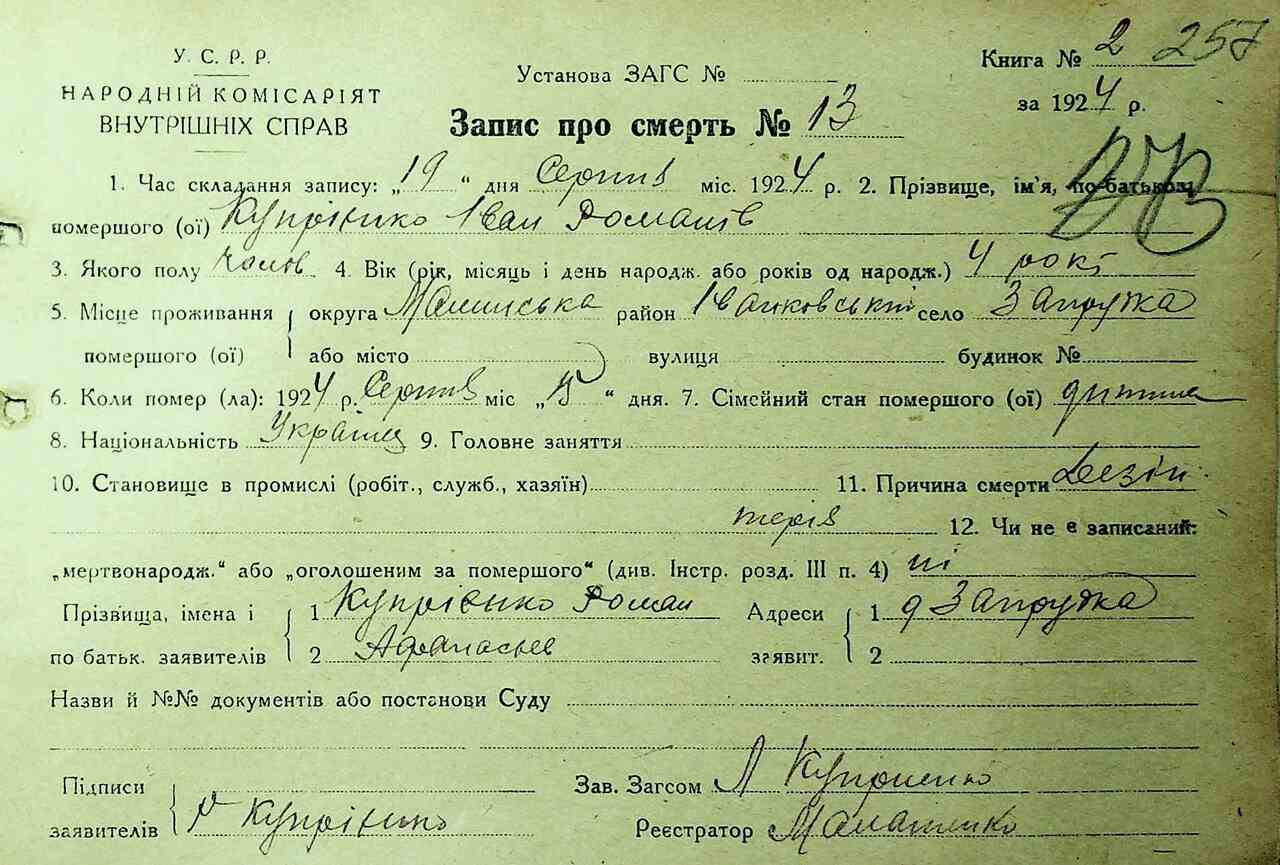 У. С. Р. Р.
НАРОДНІЙ КОМІСАРІЯТ
ВНУТРІШНІХ СПРАВ
Установа ЗАГС №
Запис про смерть № 13
Книга № 2 257
за 1924 р.
1. Час складання запису: „19“ дня Серпня міс. 1924 р. 2. Прізвище, ім'я, по-батькові
помершого (ої) Купрієнко Іван Романів
3. Якого полу чолов 4. Вік (рік, місяць і день народж. або років од народж.) 4 рокі
5. Місце проживання округа Малинська район Іванковський село Запрудка
помершого (ої) або місто вулиця будинок №
6. Коли помер (ла): 1924 р. Серпня міс „15“ дня. 7. Сімейний стан помершого (ої) дитина
8. Національність Українц 9. Головне заняття
10. Становище в промислі (робіт., служб., хазяїн) 11. Причина смерти Дезін
терія 12. Чи не є записаний:
„мертвонародж.“ або „оголошеним за помершого“ (див. Інстр. розд. III п. 4) ні
Прізвища, імена і 1 Купрієнко Роман Адреси 1 д Запрудка
по батьк. заявителів 2 Афанасьев заявит. 2
Назви й №№ документів або постанови Суду
Підписи Зав. Загсом Л Куприенко
заявителів Р Купрієнко Реєстратор Малашенко